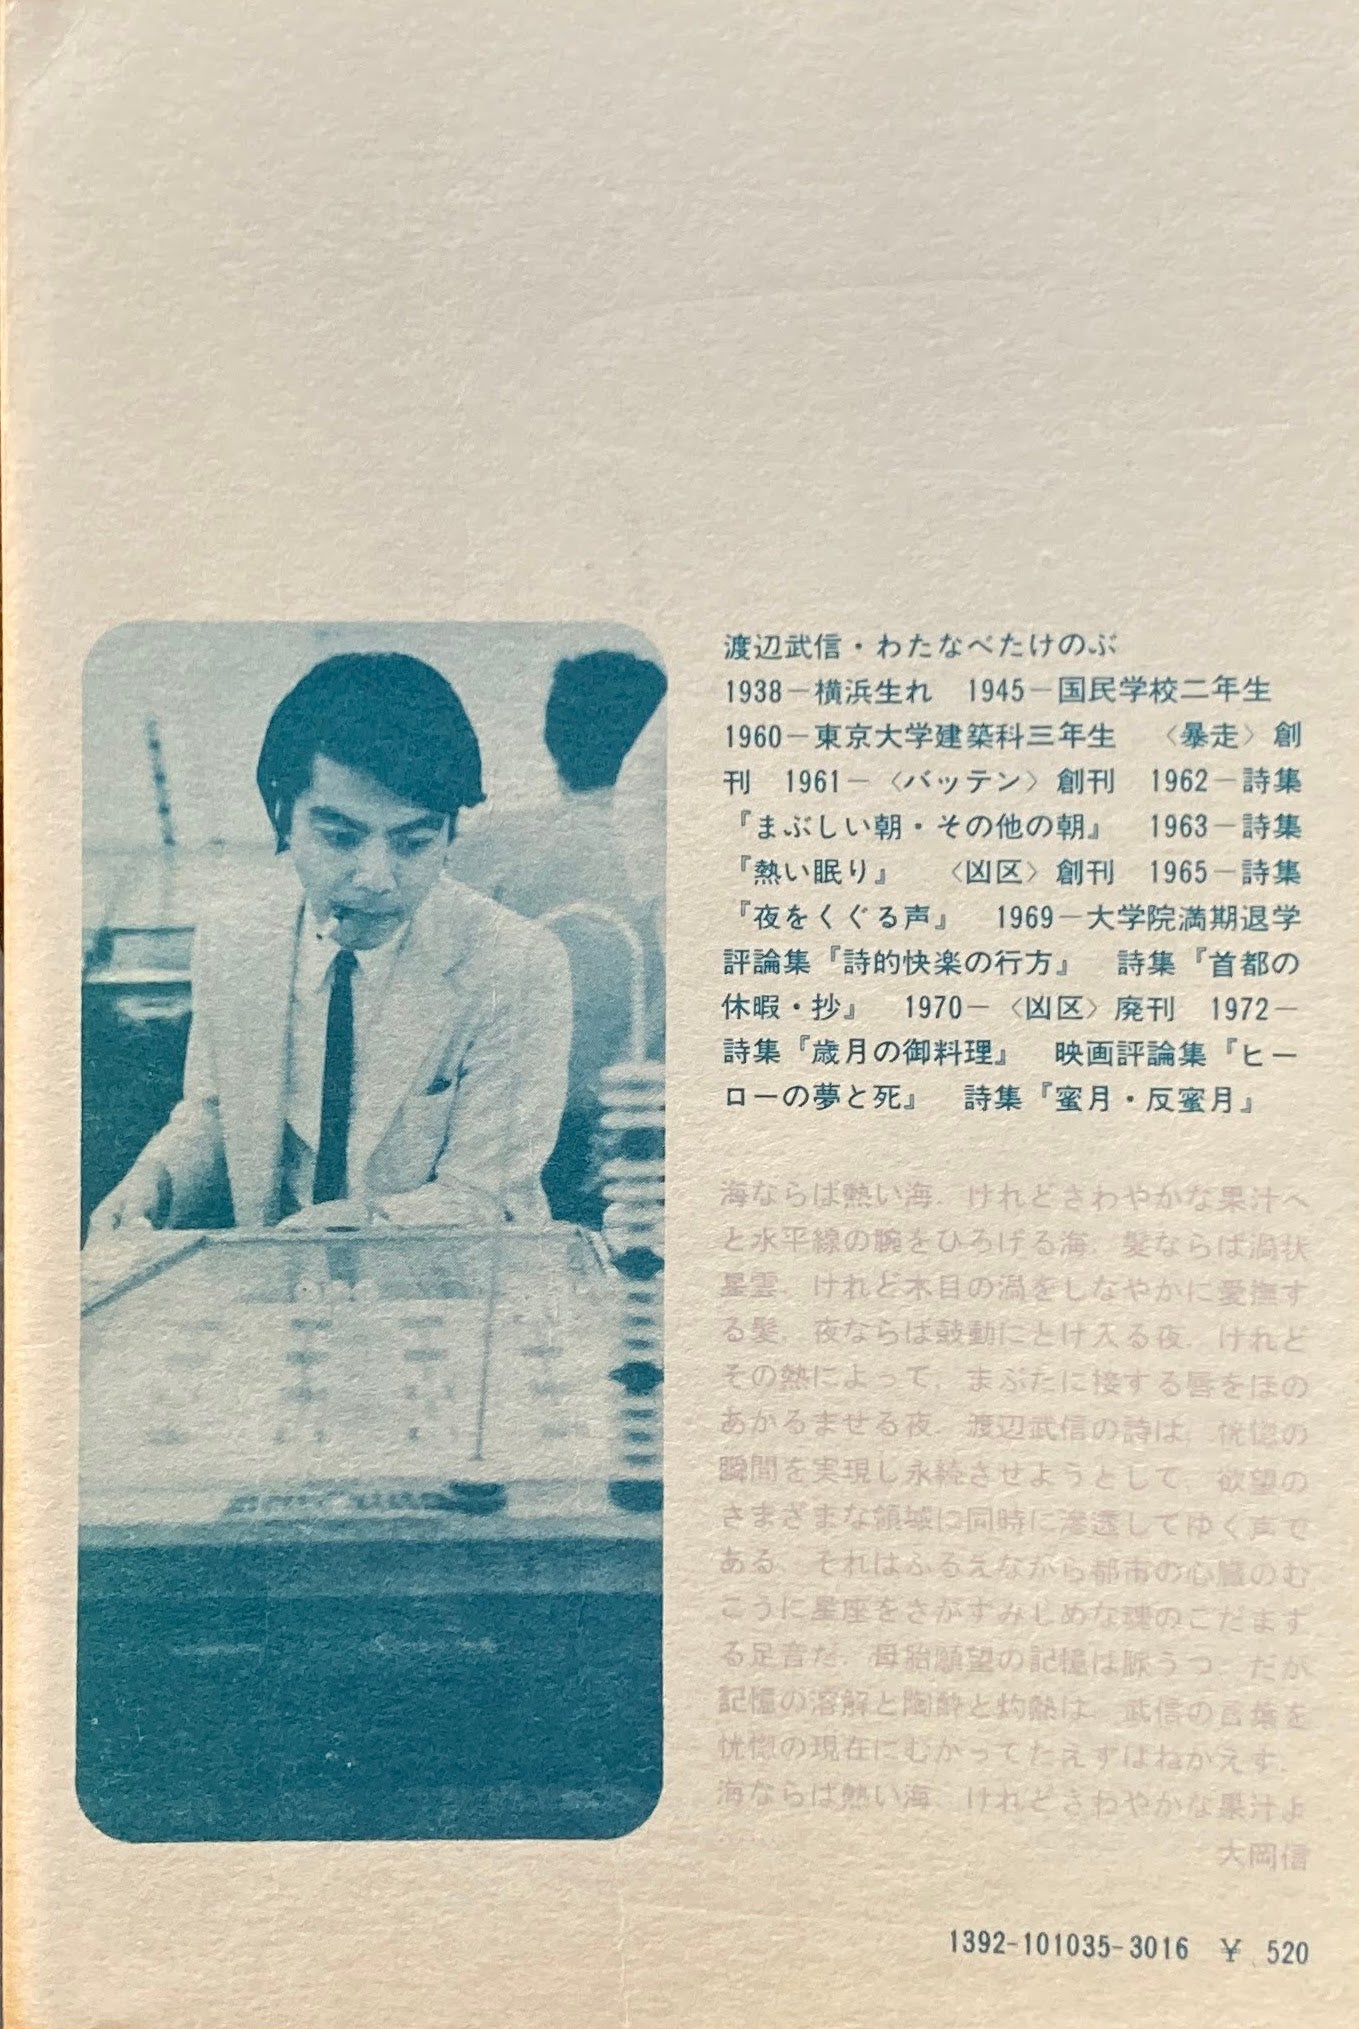 渡辺武信・わたなべたけのぶ
1938－横浜生れ　1945－国民学校二年生
1960－東京大学建築科三年生　〈暴走〉創
刊　1961－〈バッテン〉創刊　1962－詩集
『まぶしい朝・その他の朝』　1963－詩集
『熱い眠り』　〈凶区〉創刊　1965－詩集
『夜をくぐる声』　1969－大学院満期退学
評論集『詩的快楽の行方』　詩集『首都の
休暇・抄』　1970－〈凶区〉廃刊　1972－
詩集『歳月の御料理』　映画評論集『ヒー
ローの夢と死』　詩集『蜜月・反蜜月』
海ならば熱い海．けれどさわやかな果汁へ
と水平線の腕をひろげる海．髪ならば渦状
星雲．けれど木目の渦をしなやかに愛撫す
る髪．夜ならば鼓動にとけ入る夜．けれど
その熱によって，まぶたに接する唇をほの
あかるませる夜．渡辺武信の詩は，恍惚の
瞬間を実現し永続させようとして，欲望の
さまざまな領域に同時に滲透してゆく声で
ある．それはふるえながら都市の心臓のむ
こうに星座をさがすみじめな魂のこだます
る足音だ．母胎願望の記憶は脈うつ．だが
記憶の溶解と陶酔と灼熱は，武信の言葉を
恍惚の現在にむかってたえずはねかえす．
海ならば熱い海．けれどさわやかな果汁よ
……
大岡信
1392-101035-3016　￥ 520